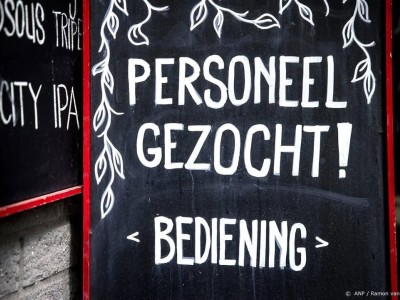 OSOUS TRIPE
CITY IPA
PERSONEEL
GEZOCHT!
< BEDIENING >
© ANP / Ramon van